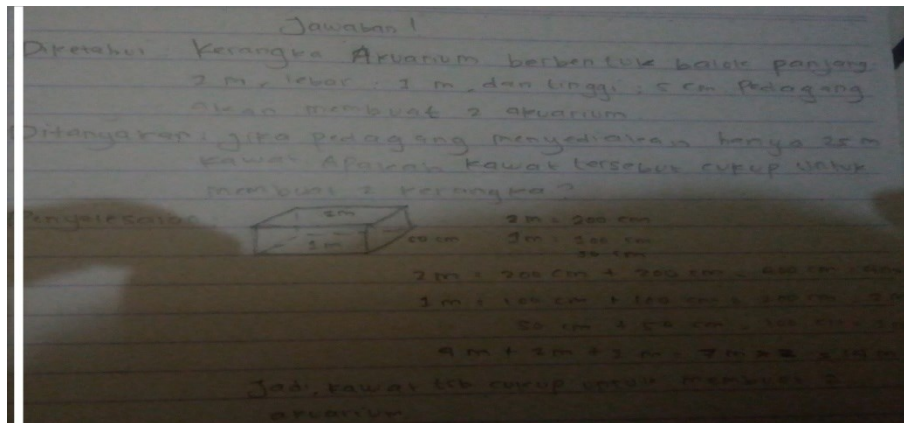 Jawaban!
Diketahui Kerangka Akuarium berbentuk balok panjang:
2 m, lebar: 1 m, dan tinggi: 5 cm Pedagang
akan membuat 2 akuarium
Ditanyakan: jika pedagang menyediakan hanya 25 m
kawat Apakah kawat tersebut cukup untuk
membuat 2 kerangka?
Penyelesaian
2m
1m
50 cm
2m = 200 cm
1m = 100 cm
50 cm
2 m = 200 cm + 200 cm = 400 cm
1 m = 100 cm + 100 cm = 200 cm
50 cm + 50 cm = 100 cm
4 m + 2 m + 1 m = 7 m x 2
Jadi, kawat tsb cukup untuk membuat 2
akuarium